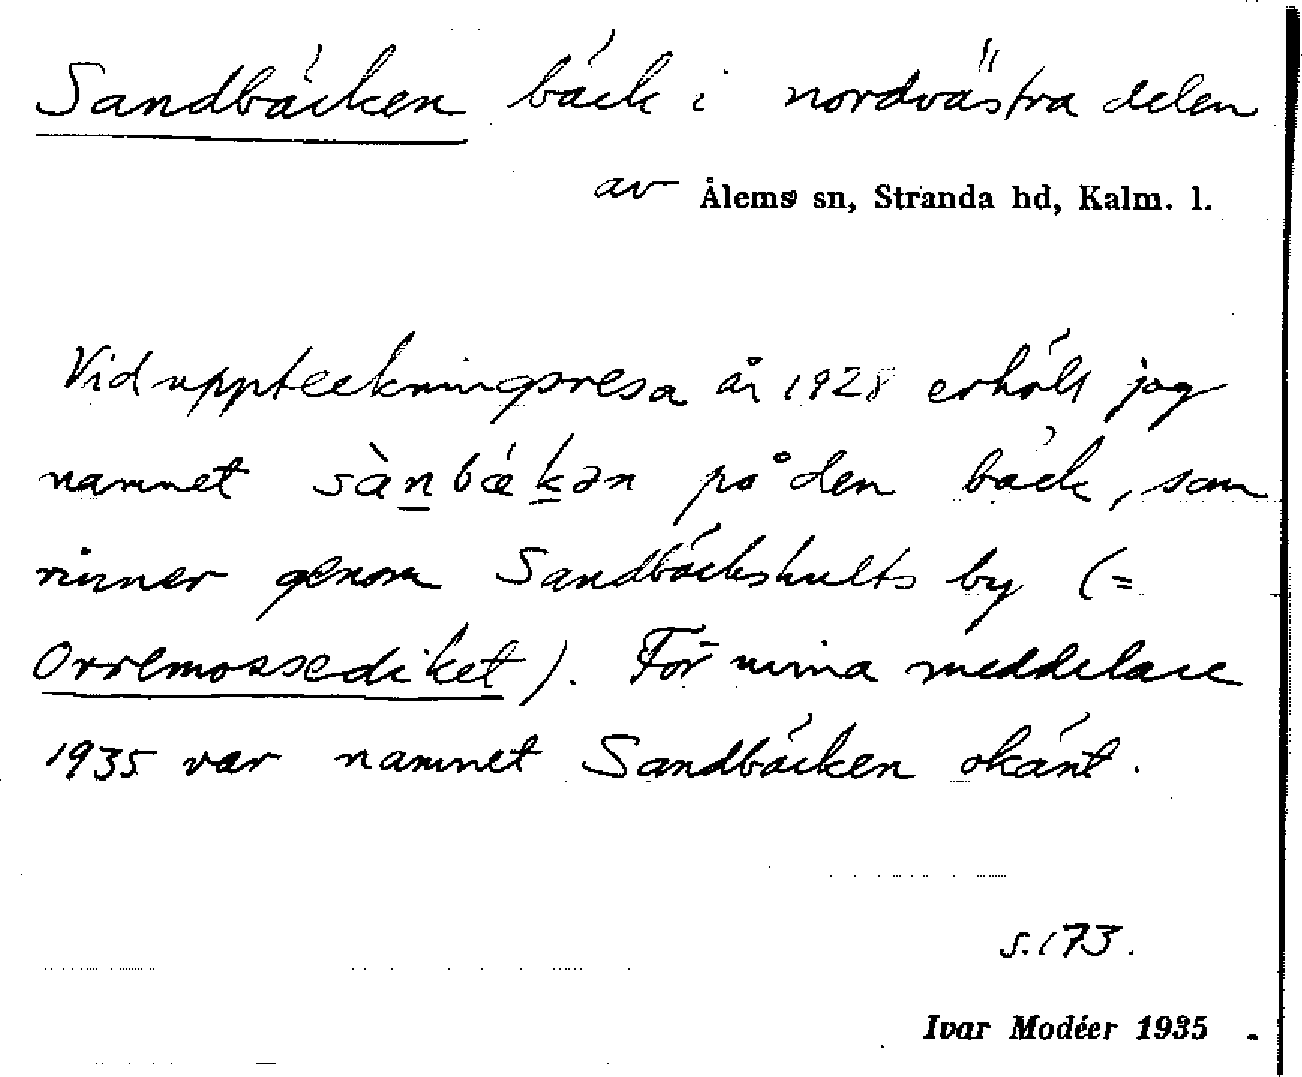 Sandbäcken bäck i nordvästra delen
av Ålems sn, Stranda hd, Kalm. l.
Vid uppteckningsresa år 1928 erhöll jag
namnet sànbækən på den bäck, som
rinner genom Sandbäckshults by (=
Orremossediket). För mina meddelare
1935 var namnet Sandbäcken okänt.
s. 173.
Ivar Modéer 1935